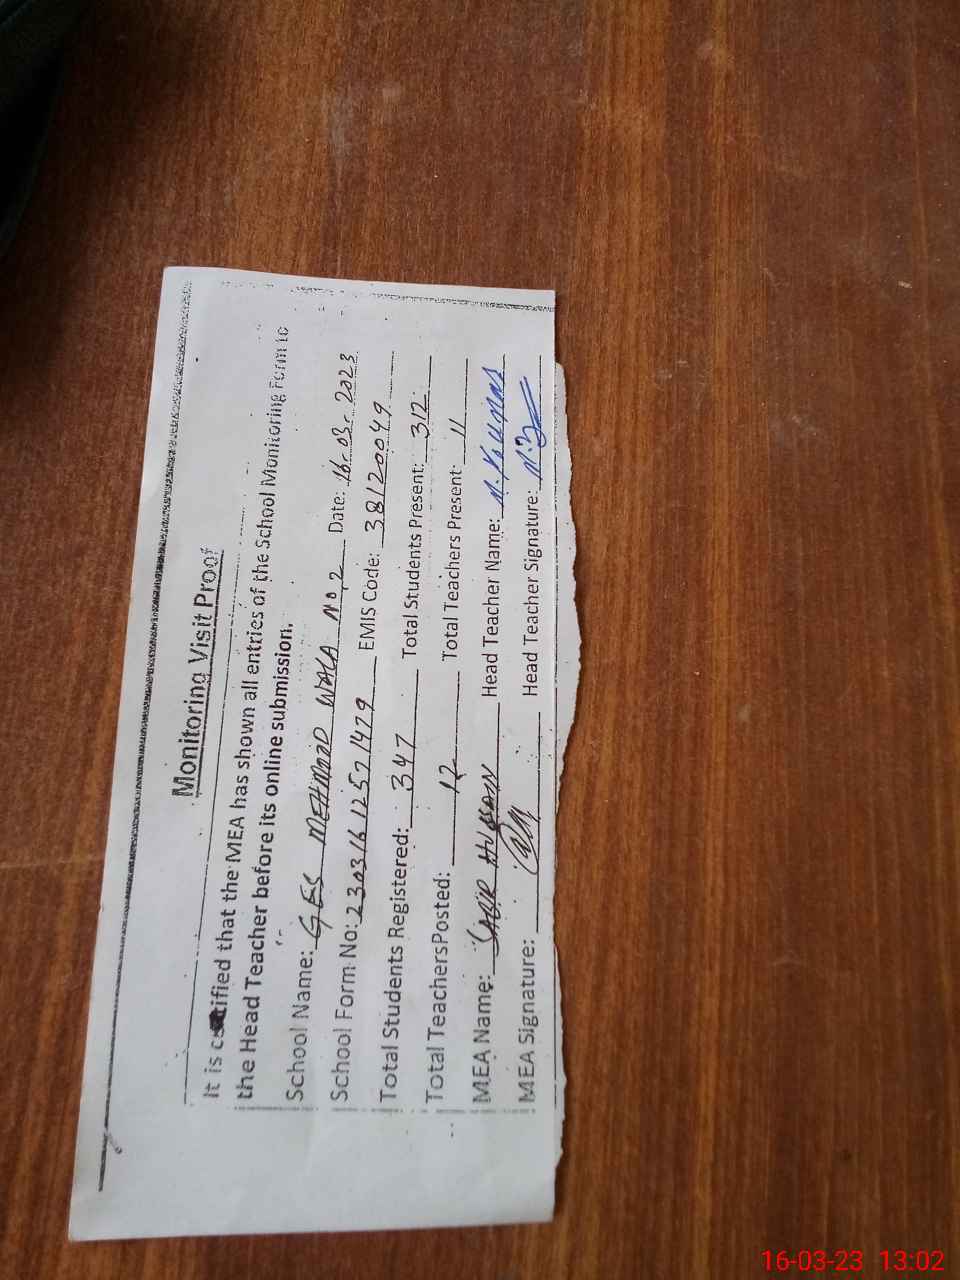 Monitoring Visit Proof
It is certified that the MEA has shown all entries of the School Monitoring Form to
the Head Teacher before its online submission.
School Name: GES MEHMOOD WALA No, 2 Date: 16-03-2023
School Form No: 23031612571479 EMIS Code: 38120049
Total Students Registered: 347 Total Students Present: 312
Total TeachersPosted: 12 Total Teachers Present: 11
MEA Name: SABIR HUSSAIN Head Teacher Name: M. Younas
MEA Signature: Head Teacher Signature:
16-03-23 13:02